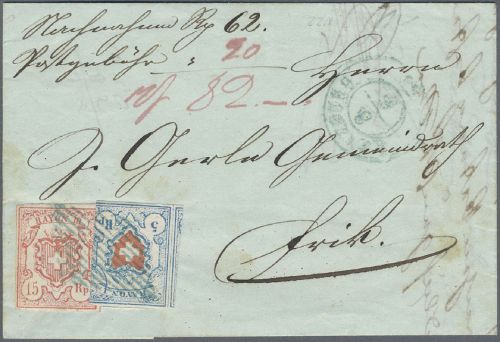 Nachnahme Rp 62.
Postgebühr " 20
rf 82.—.
Herrn
J. Gerle Gemeindrath
Frik.
15 Rp
5 R
RAYON